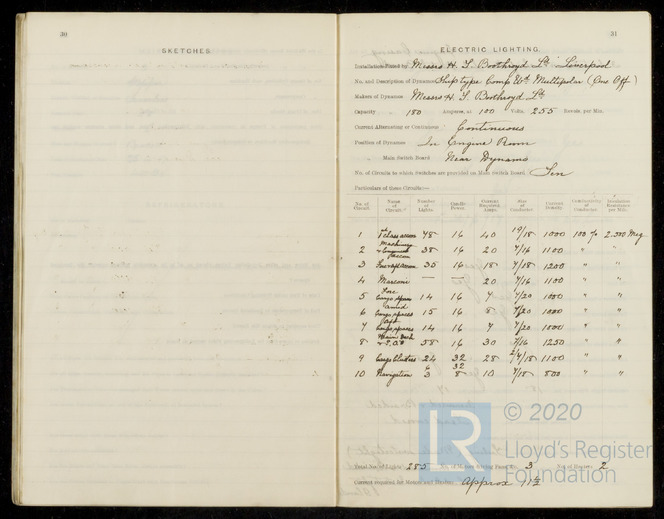 30
SKETCHES
31
ELECTRIC LIGHTING.
Installation fitted by Messrs H. T. Boothroyd Ld Liverpool
No. and Description of Dynamos Ship type Comp Wd Multipolar (One Off)
Makers of Dynamos Messrs H. T. Boothroyd Ld
Capacity 180 Amperes, at 100 Volts, 255 Revols. per Min.
Current Alternating or Continuous Continuous
Position of Dynamos In Engine Room
Main Switch Board Near Dynamo
No. of Circuits to which Switches are provided on Main Switch Board Ten
Particulars of these Circuits:—
No. of Circuit. Name of Circuit. Number of Lights. Candle Power. Current Required, Amps. Size of Conductor Current Density. Conductivity of Conductor Insulation Resistance per Mile.
1 1st Class accom 48 16 40 19/18 1000 100 % 2.300 Meg
2 Machinery & Engineers accom 38 16 20 7/16 1100 " "
3 35 16 18 7/18 1200 " "
4 Marconi — — 20 7/16 1100 " "
5 Fore Cargo spaces 14 16 7 7/20 1000 " "
6 Cargo spaces 15 16 8 7/20 1000 " "
7 Aft Cargo spaces 14 16 7 7/20 1000 " "
8 Main Deck 58 16 30 7/16 1250 " "
9 Cargo Clusters 24 32 28 7/18 1100 " "
10 Navigation 6 3 32 8 10 7/18 800 " "
Total No. of Lights 285 No. of Motors driving Fans, &c. 3 No. of Heaters 2
Current required for Motors and Heaters Approx
© 2020
LR
Lloyd's Register
Foundation